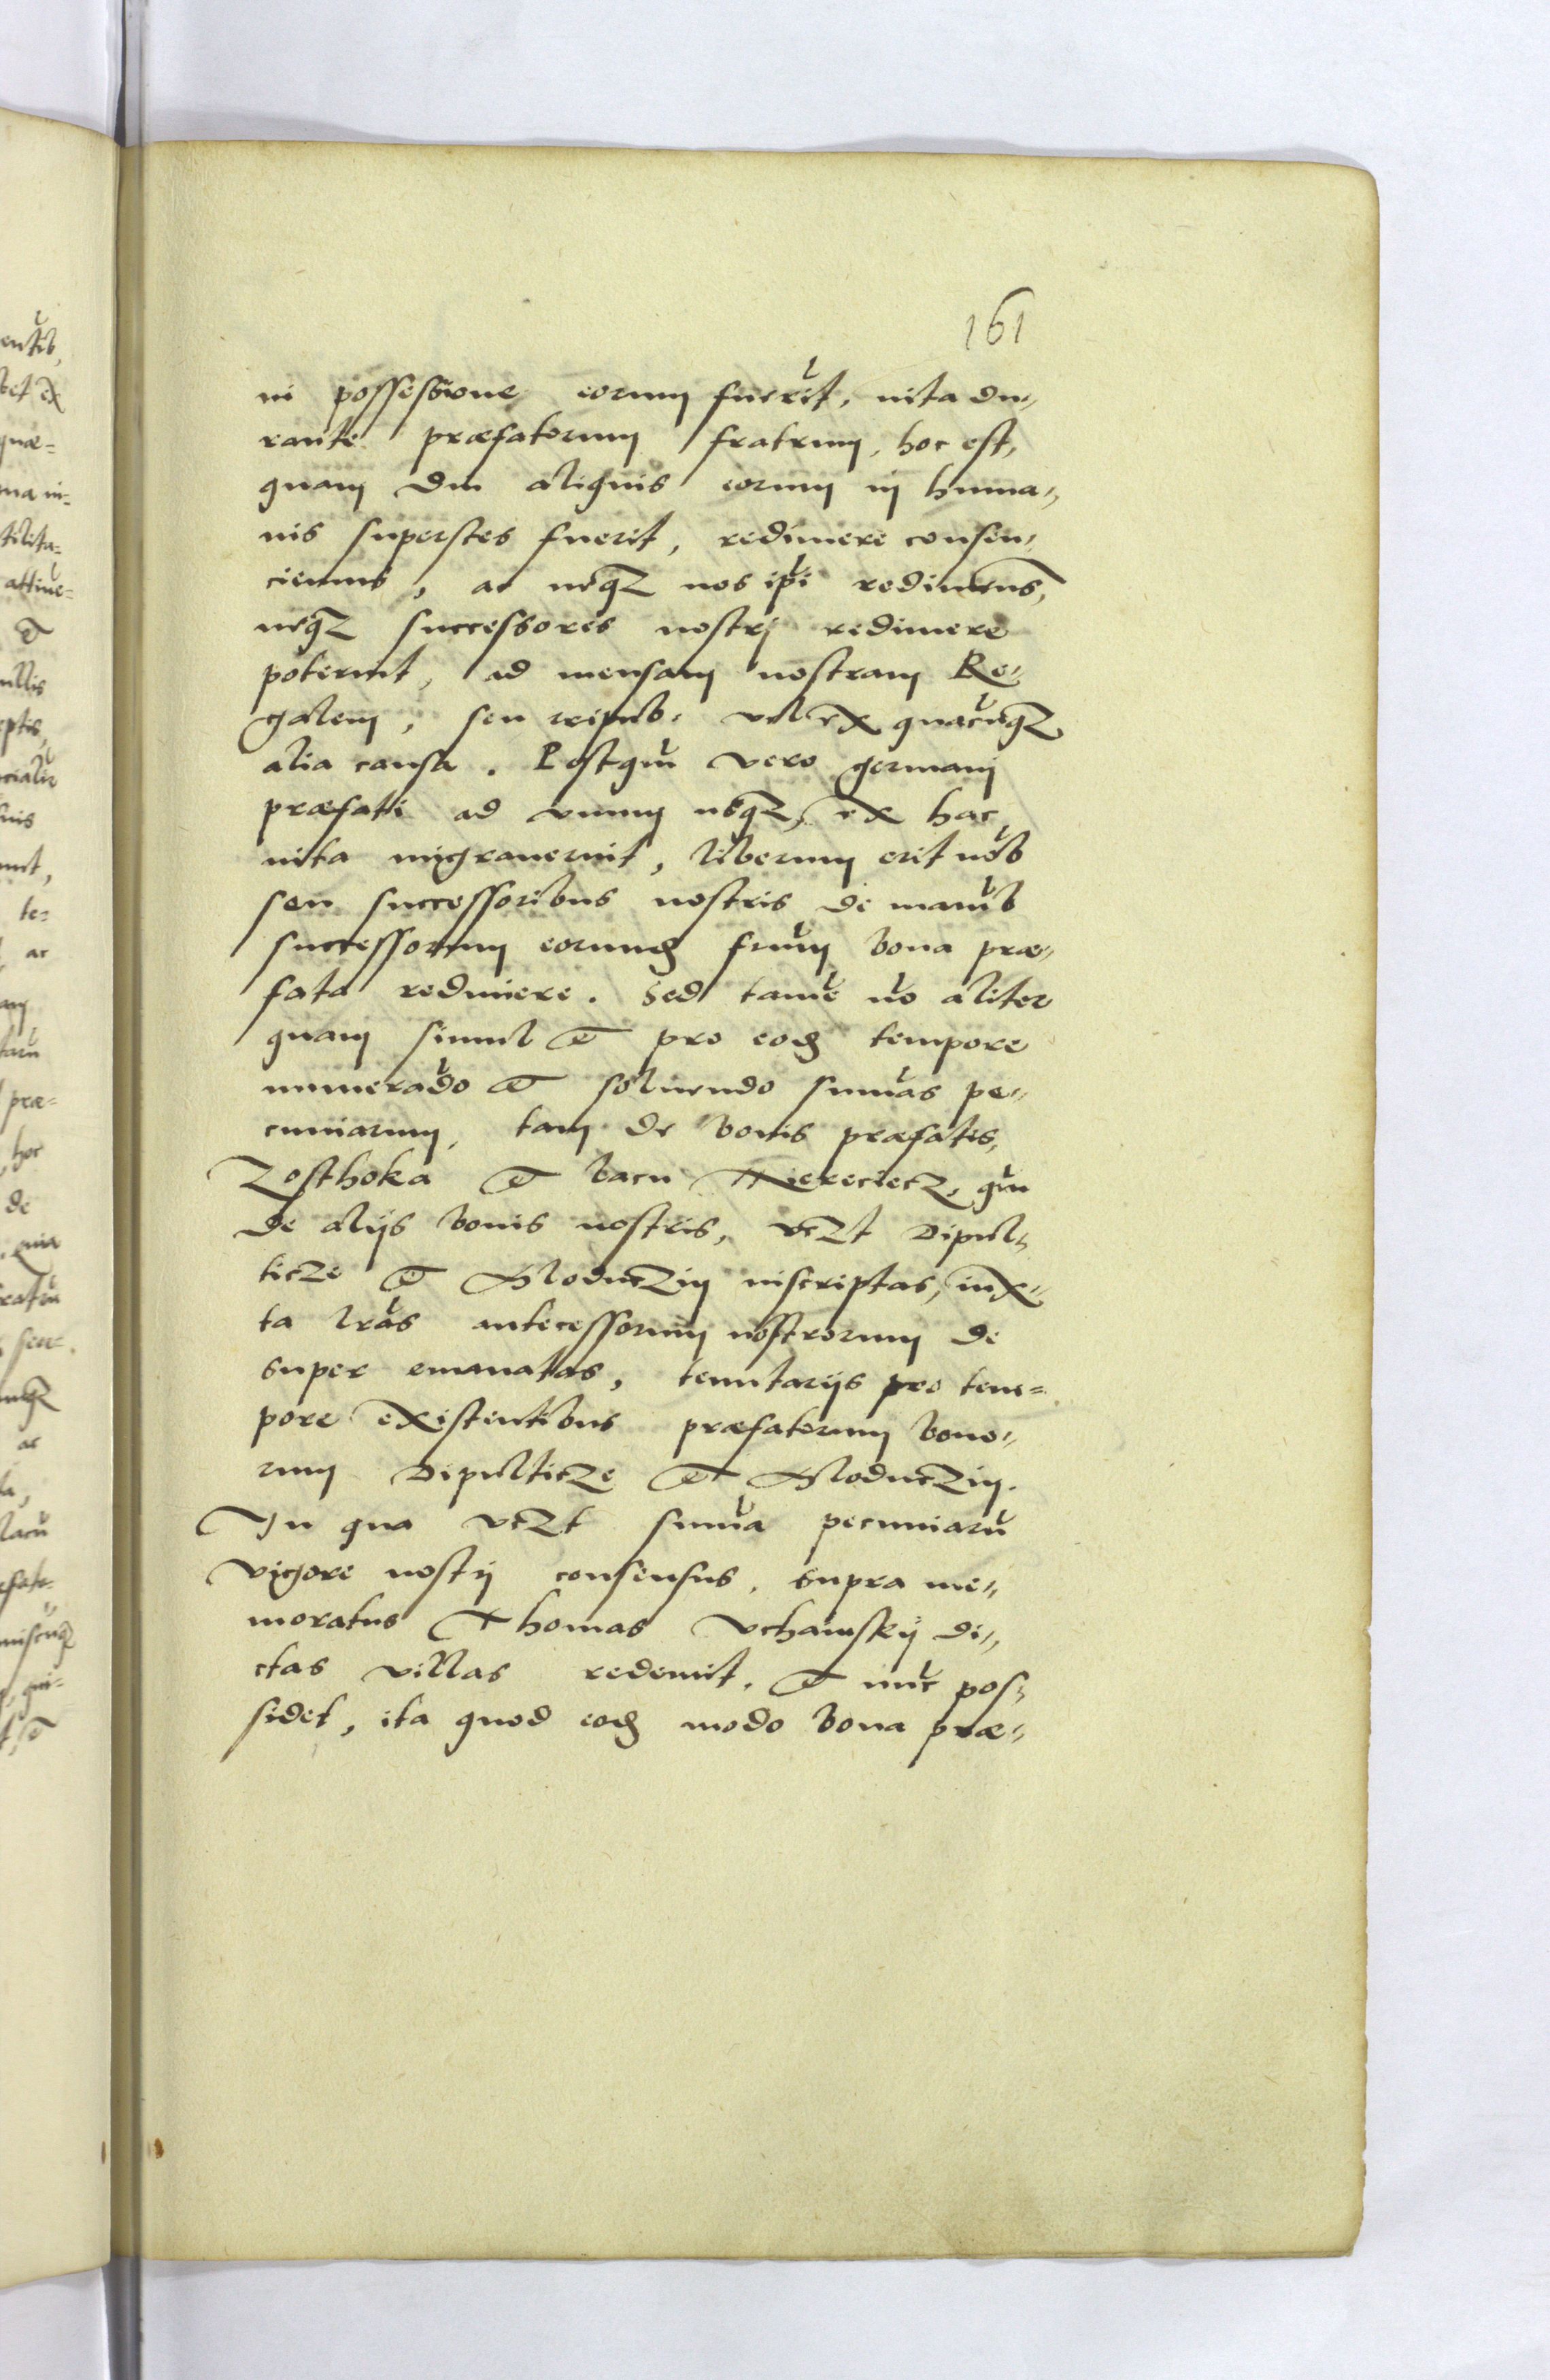 161
in possessione eorum fuerit, vita du„
rante præfatorum fratrum, hoc est,
quam diu aliquis eorum in huma„
nis superstes fuerit, redimere consen„
ciemus, ac neqz nos ipi redimems,
neqz successores nostrj redimere
poterint, ad mensam nostram Re„
galem, seu reipub: vel ex quacūqz
alia causa. Postqm vero germani
præfati ad vnum usqz, ex hac
vita migraverint, liberum erit nob
seu successoribus nostris de manib
successorum eorund frum bona præ„
fata redimere. Sed tamē nō aliter
quam simul et pro eod tempore
numerādo et solvendo summas pe„
cuniarum, tam de bonis præfatis,
Zosthoka et lacu Niereciecz, qm
de alijs bonis nostris, vczt Dipul„
ticze et Moduczin inscriptas, iux„
ta lras antecessorum nostrorum de
super emanatas, tenutarijs pro tem=
pore existentibus præfatorum bono„
rum Dipulticze et Moduczin.
In qua vczt summa pecuniarū
vigore nostri consensus, supra me„
moratus Thomas Vchainskÿ di„
ctas villas redemit, et nūc pos„
sidet, ita quod eod modo bona præ„